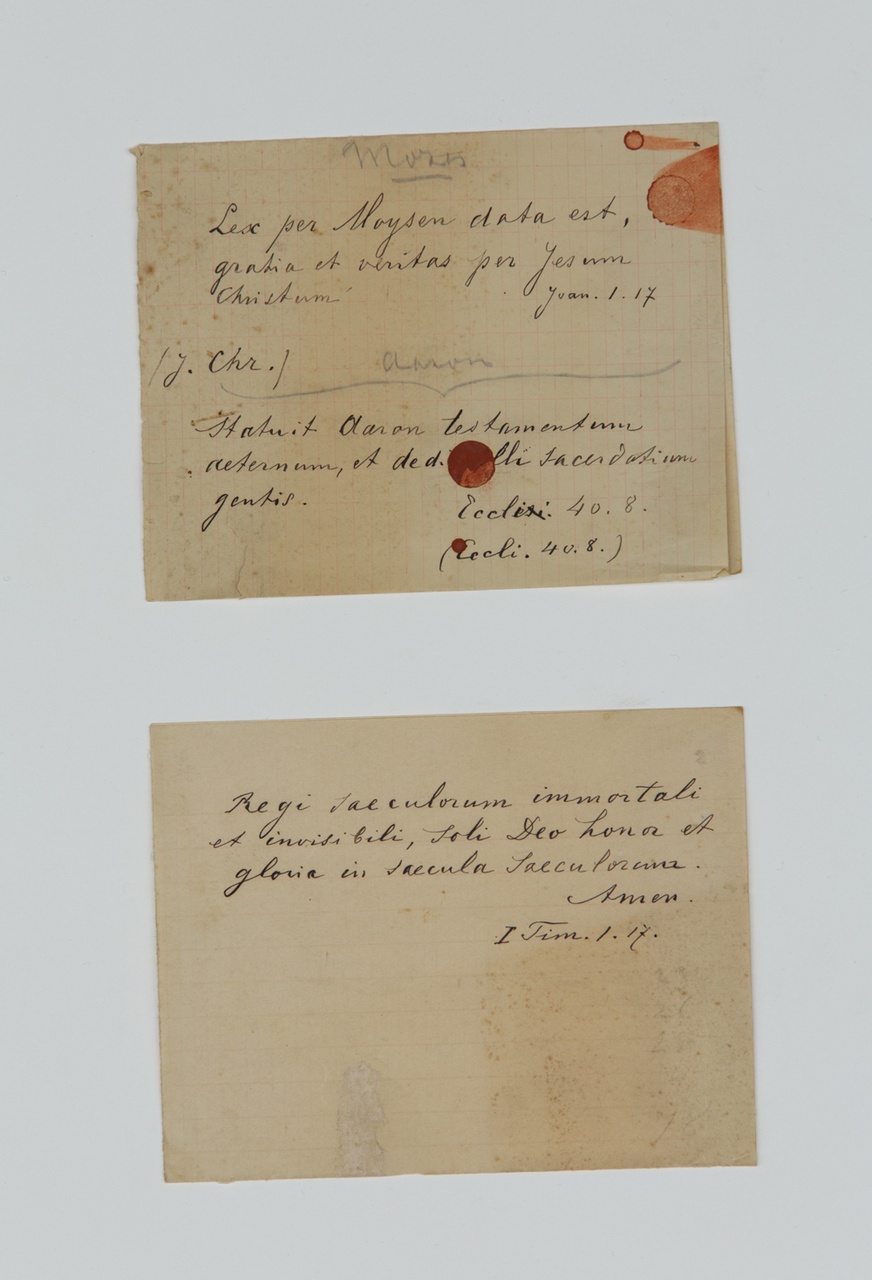 Moses
Lex per Moysen data est,
gratia et veritas per Jesum
Christum
Joan. 1. 17
(J. Chr.)
Aaron
Statuit Aaron testamentum
aeternum, et ded. lli sacerdotium
gentis.
Eccles. 40. 8.
(Eccli. 40. 8.)
Regi saeculorum immortali
et invisibili, soli Deo honor et
gloria in saecula saeculorum.
Amen.
I Tim. 1. 17.